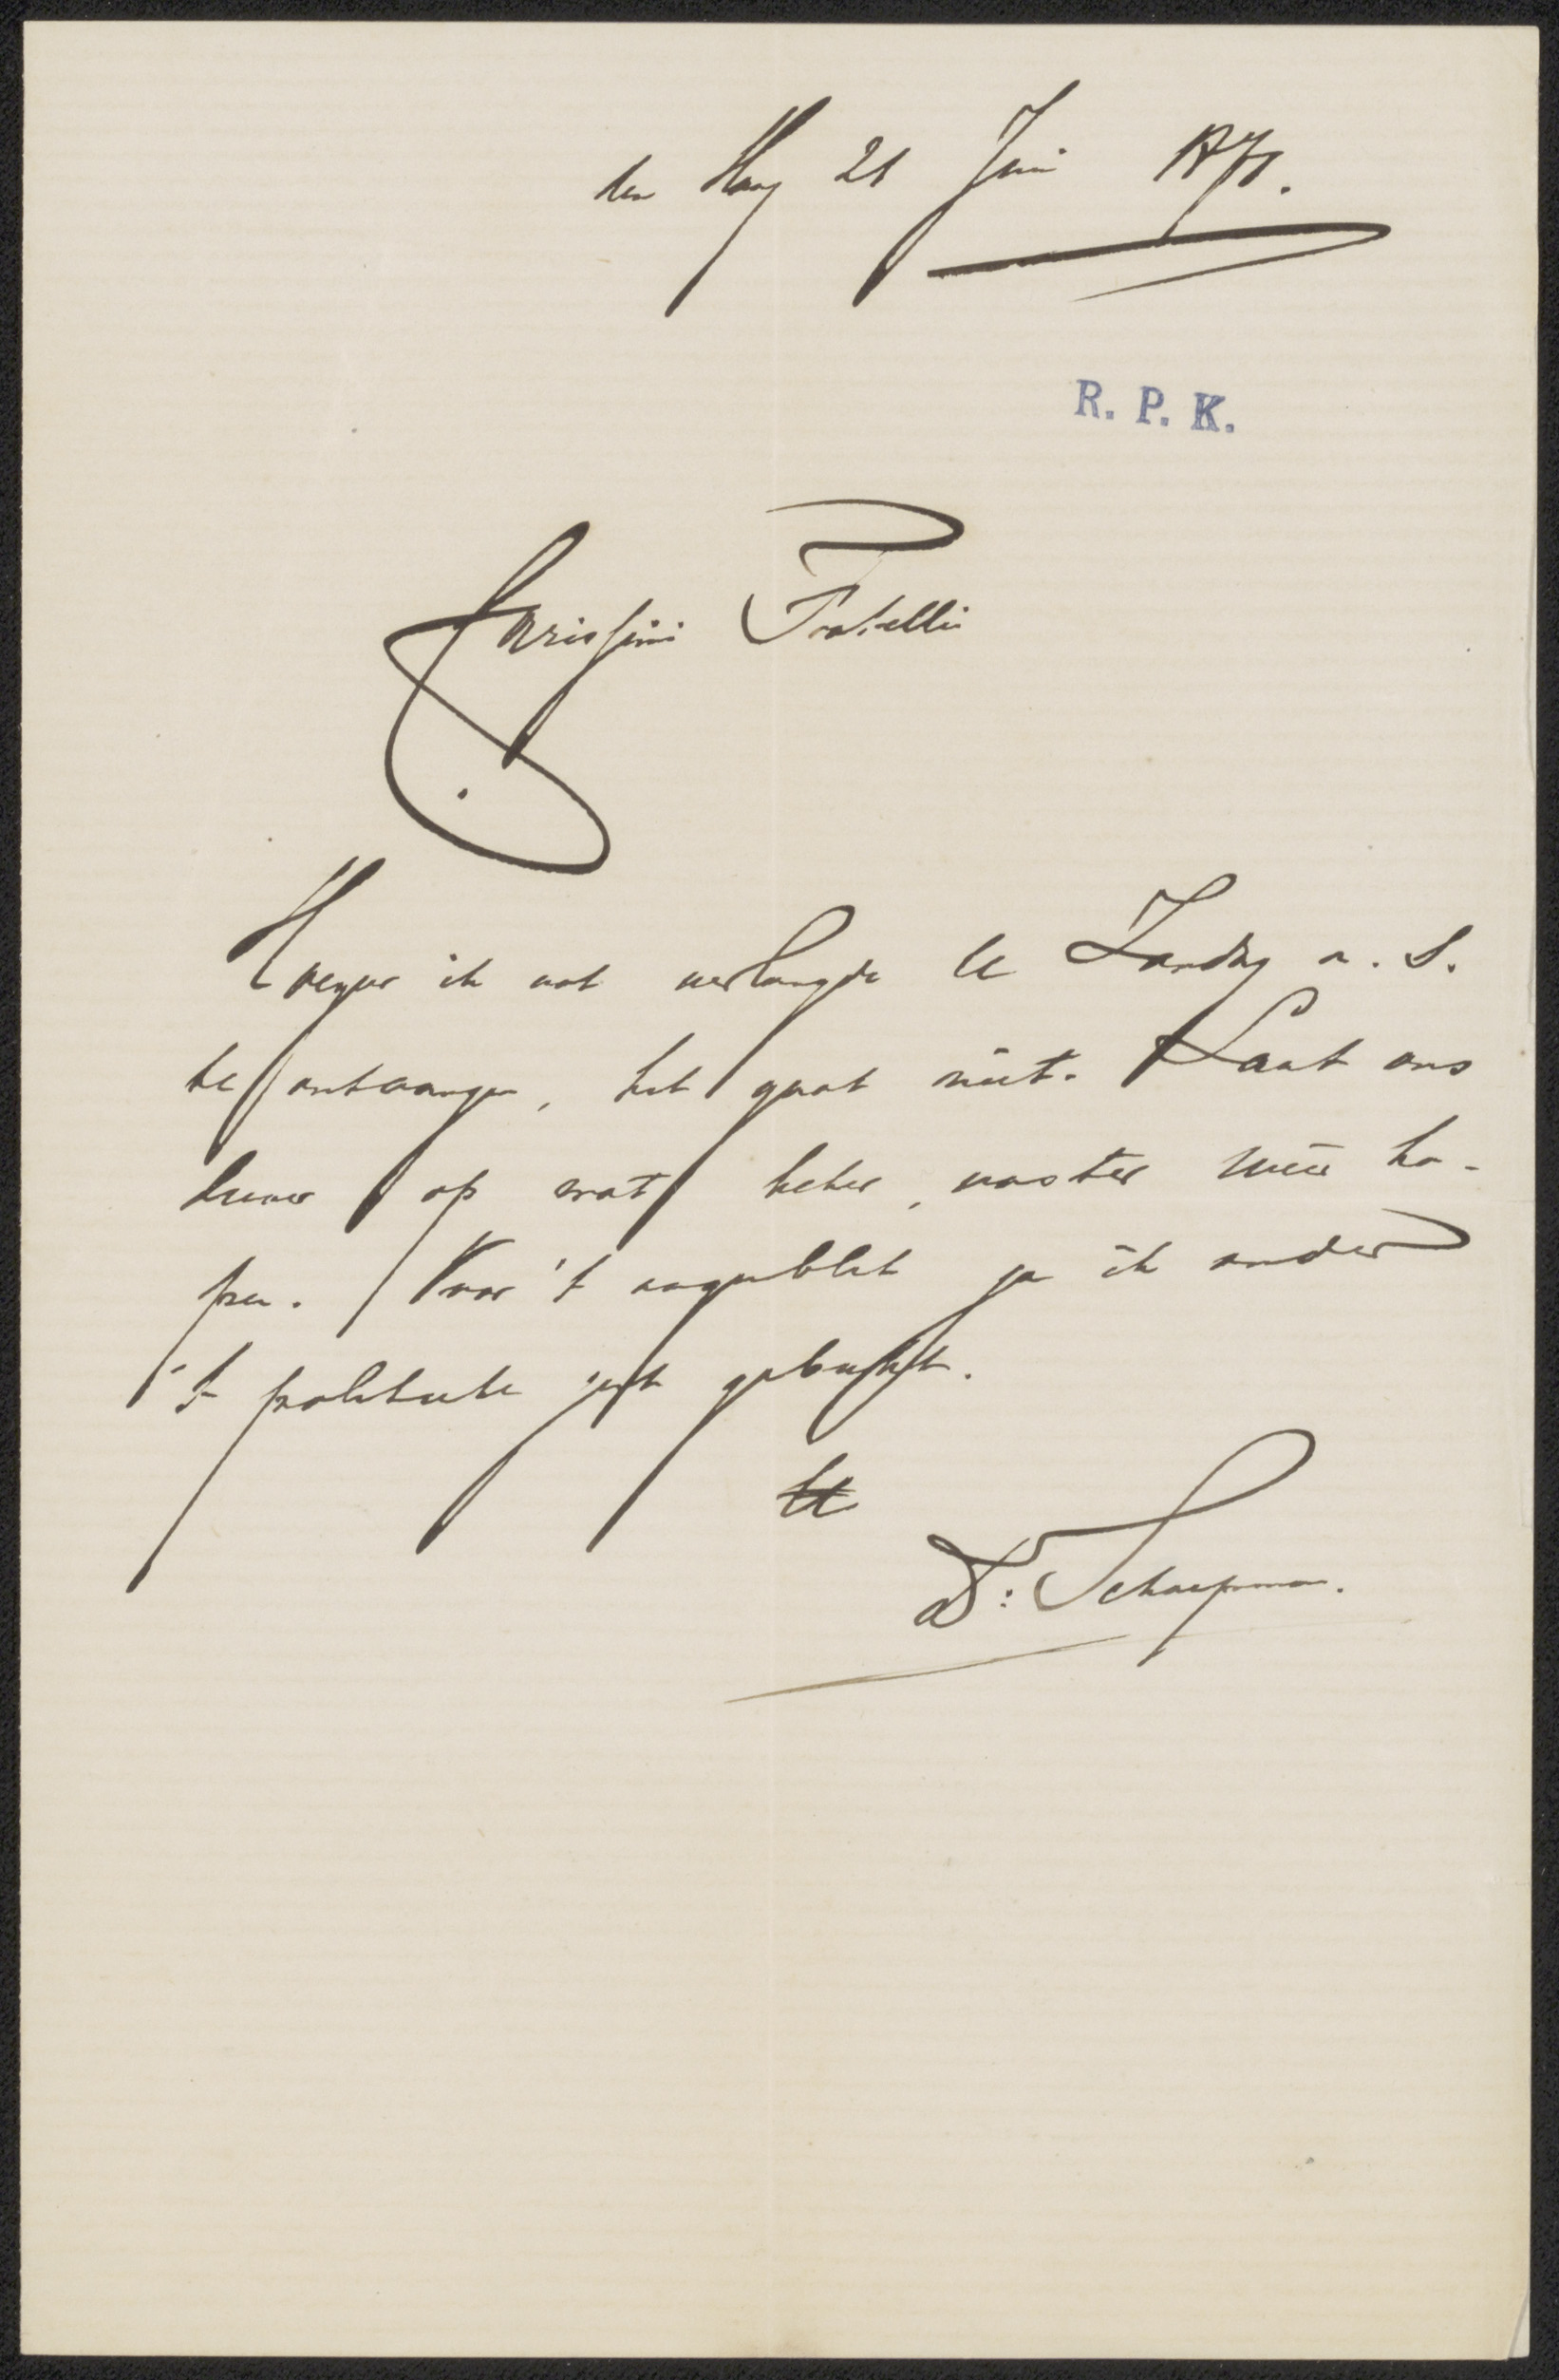 den Haag 21 Juni 1871.
R. P. K.
Carissimi Fratelli
Hoezeer ik ook verlangde U Zondag a. S.
te ontvangen, het gaat niet. Laat ons
liever op wat beter, vaster weer ho-
pen. Voor 't oogenblik ga ik onder
't politieke jagt gebukt.
Dr: Schaepman.